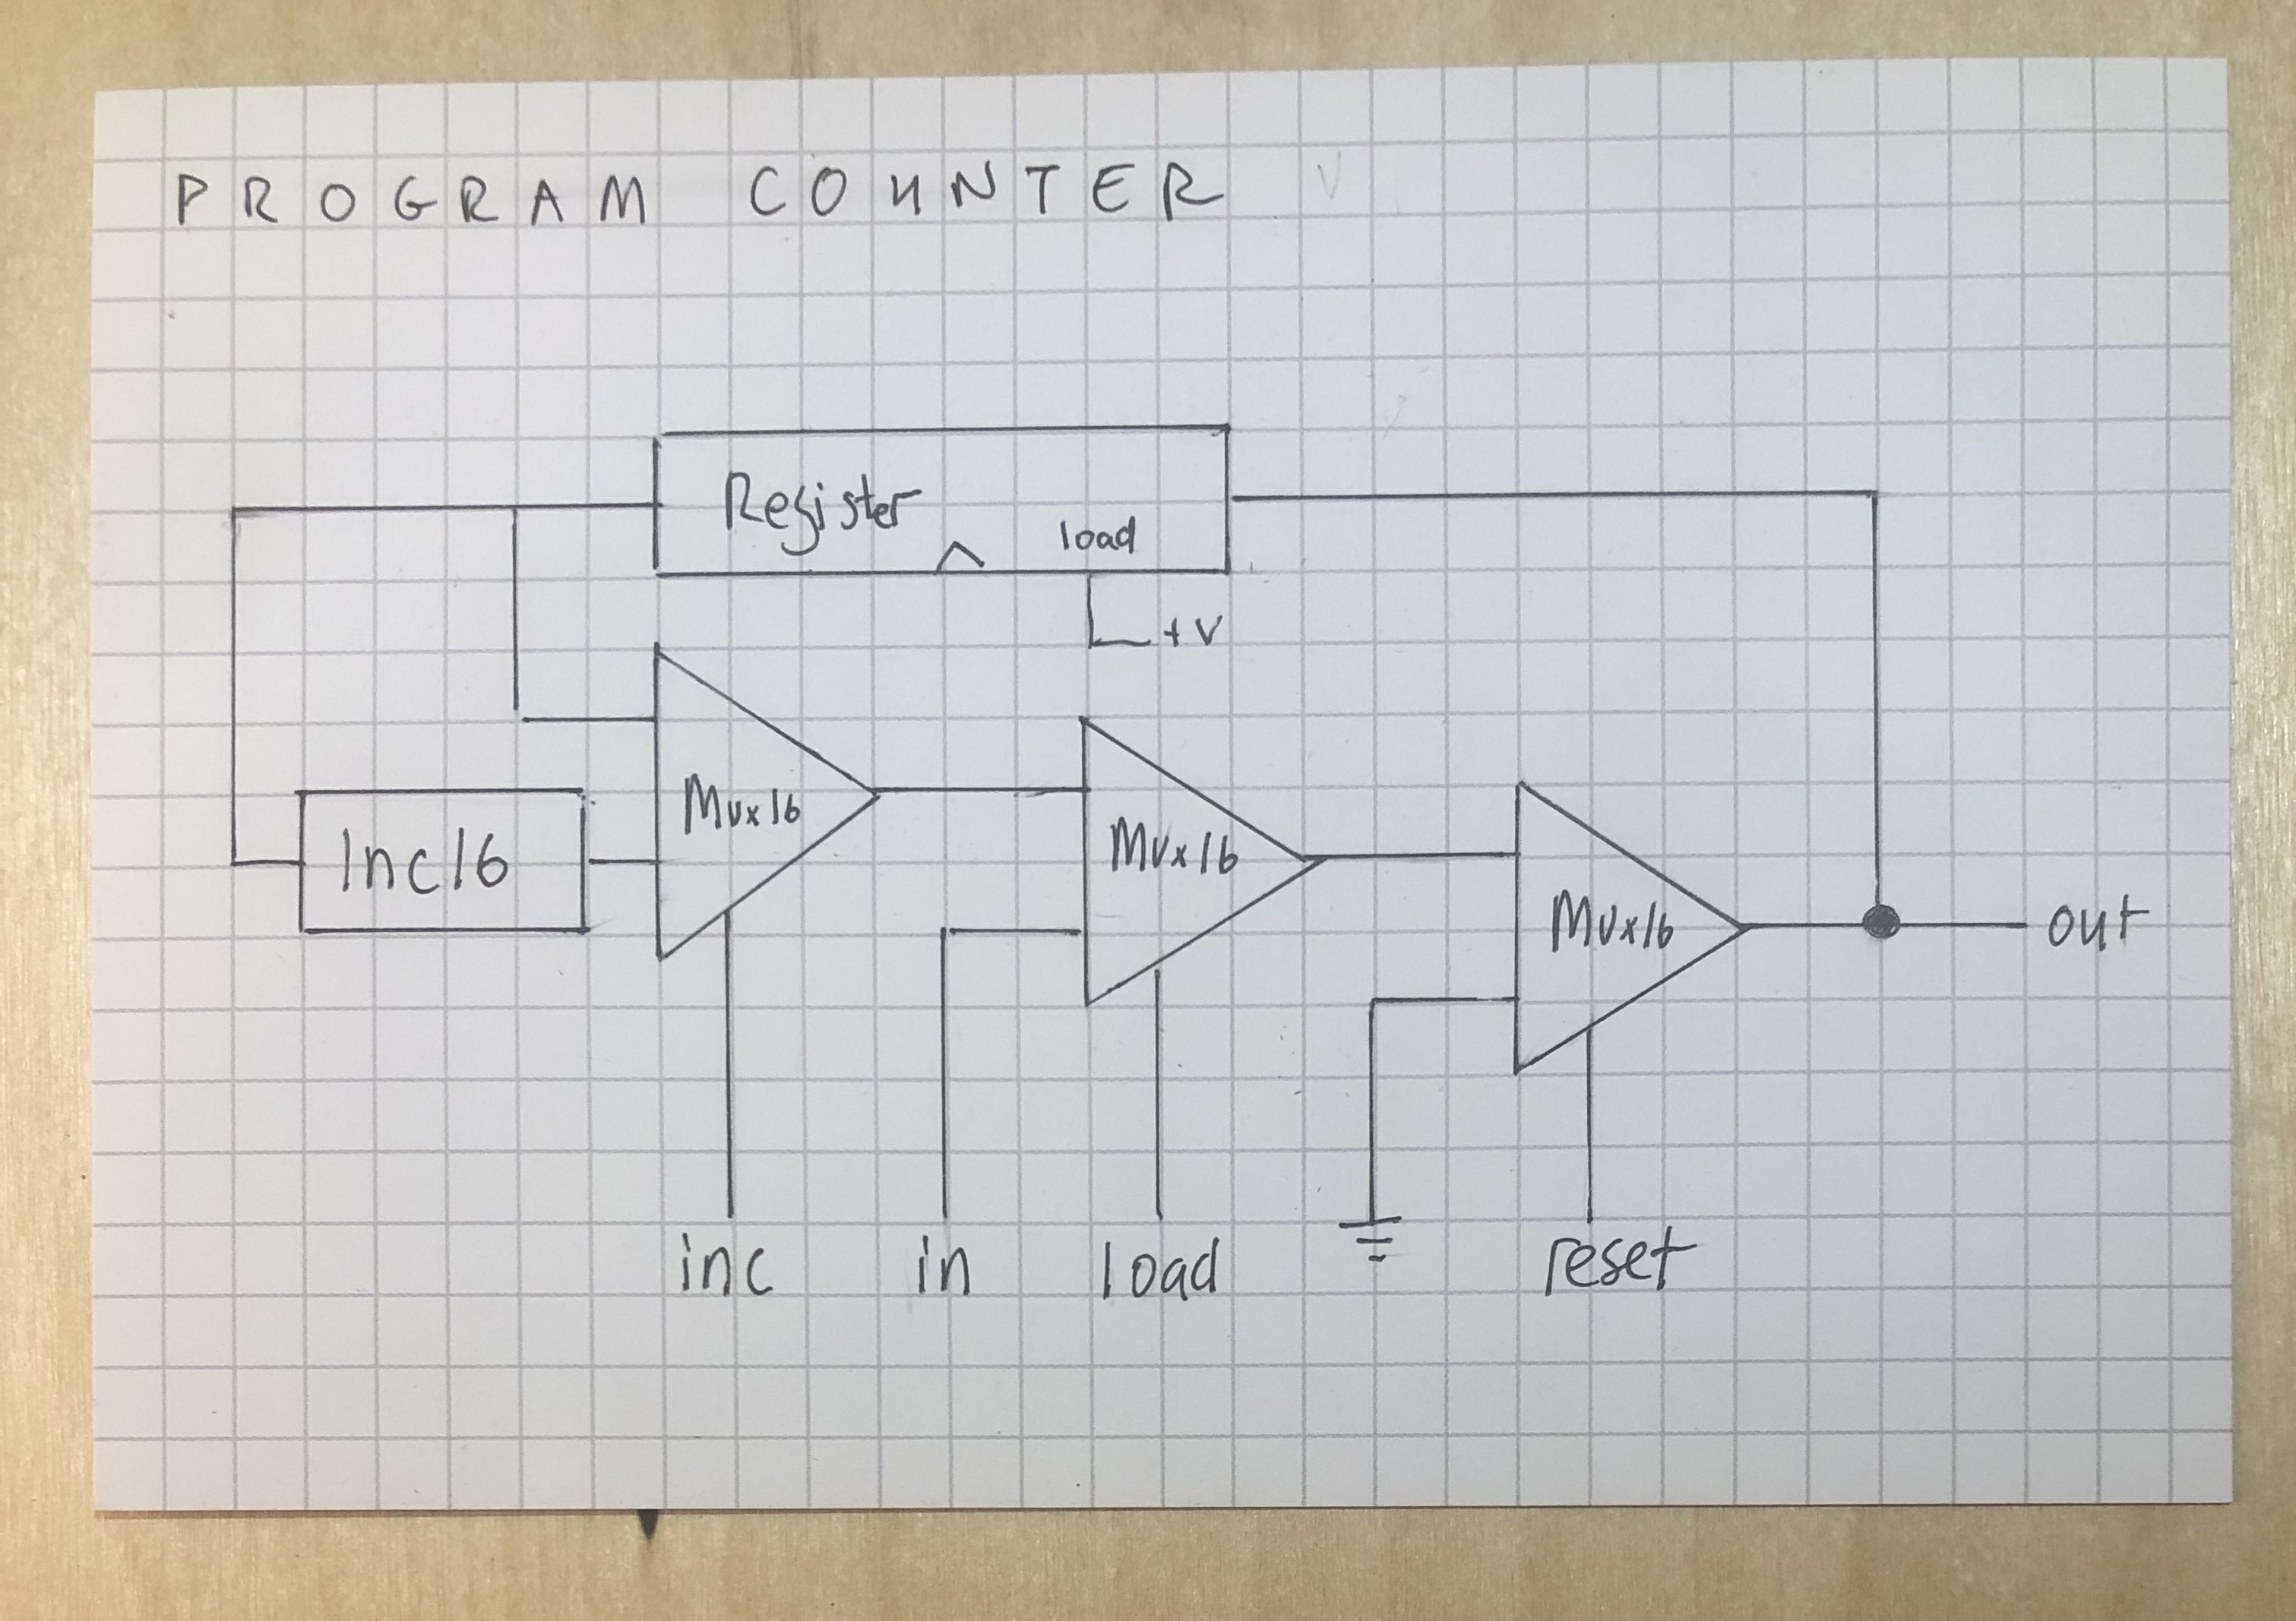 PROGRAM COUNTER
Register
load
+V
Mux16
Mux16
Inc16
Mux16
out
inc
in
load
reset